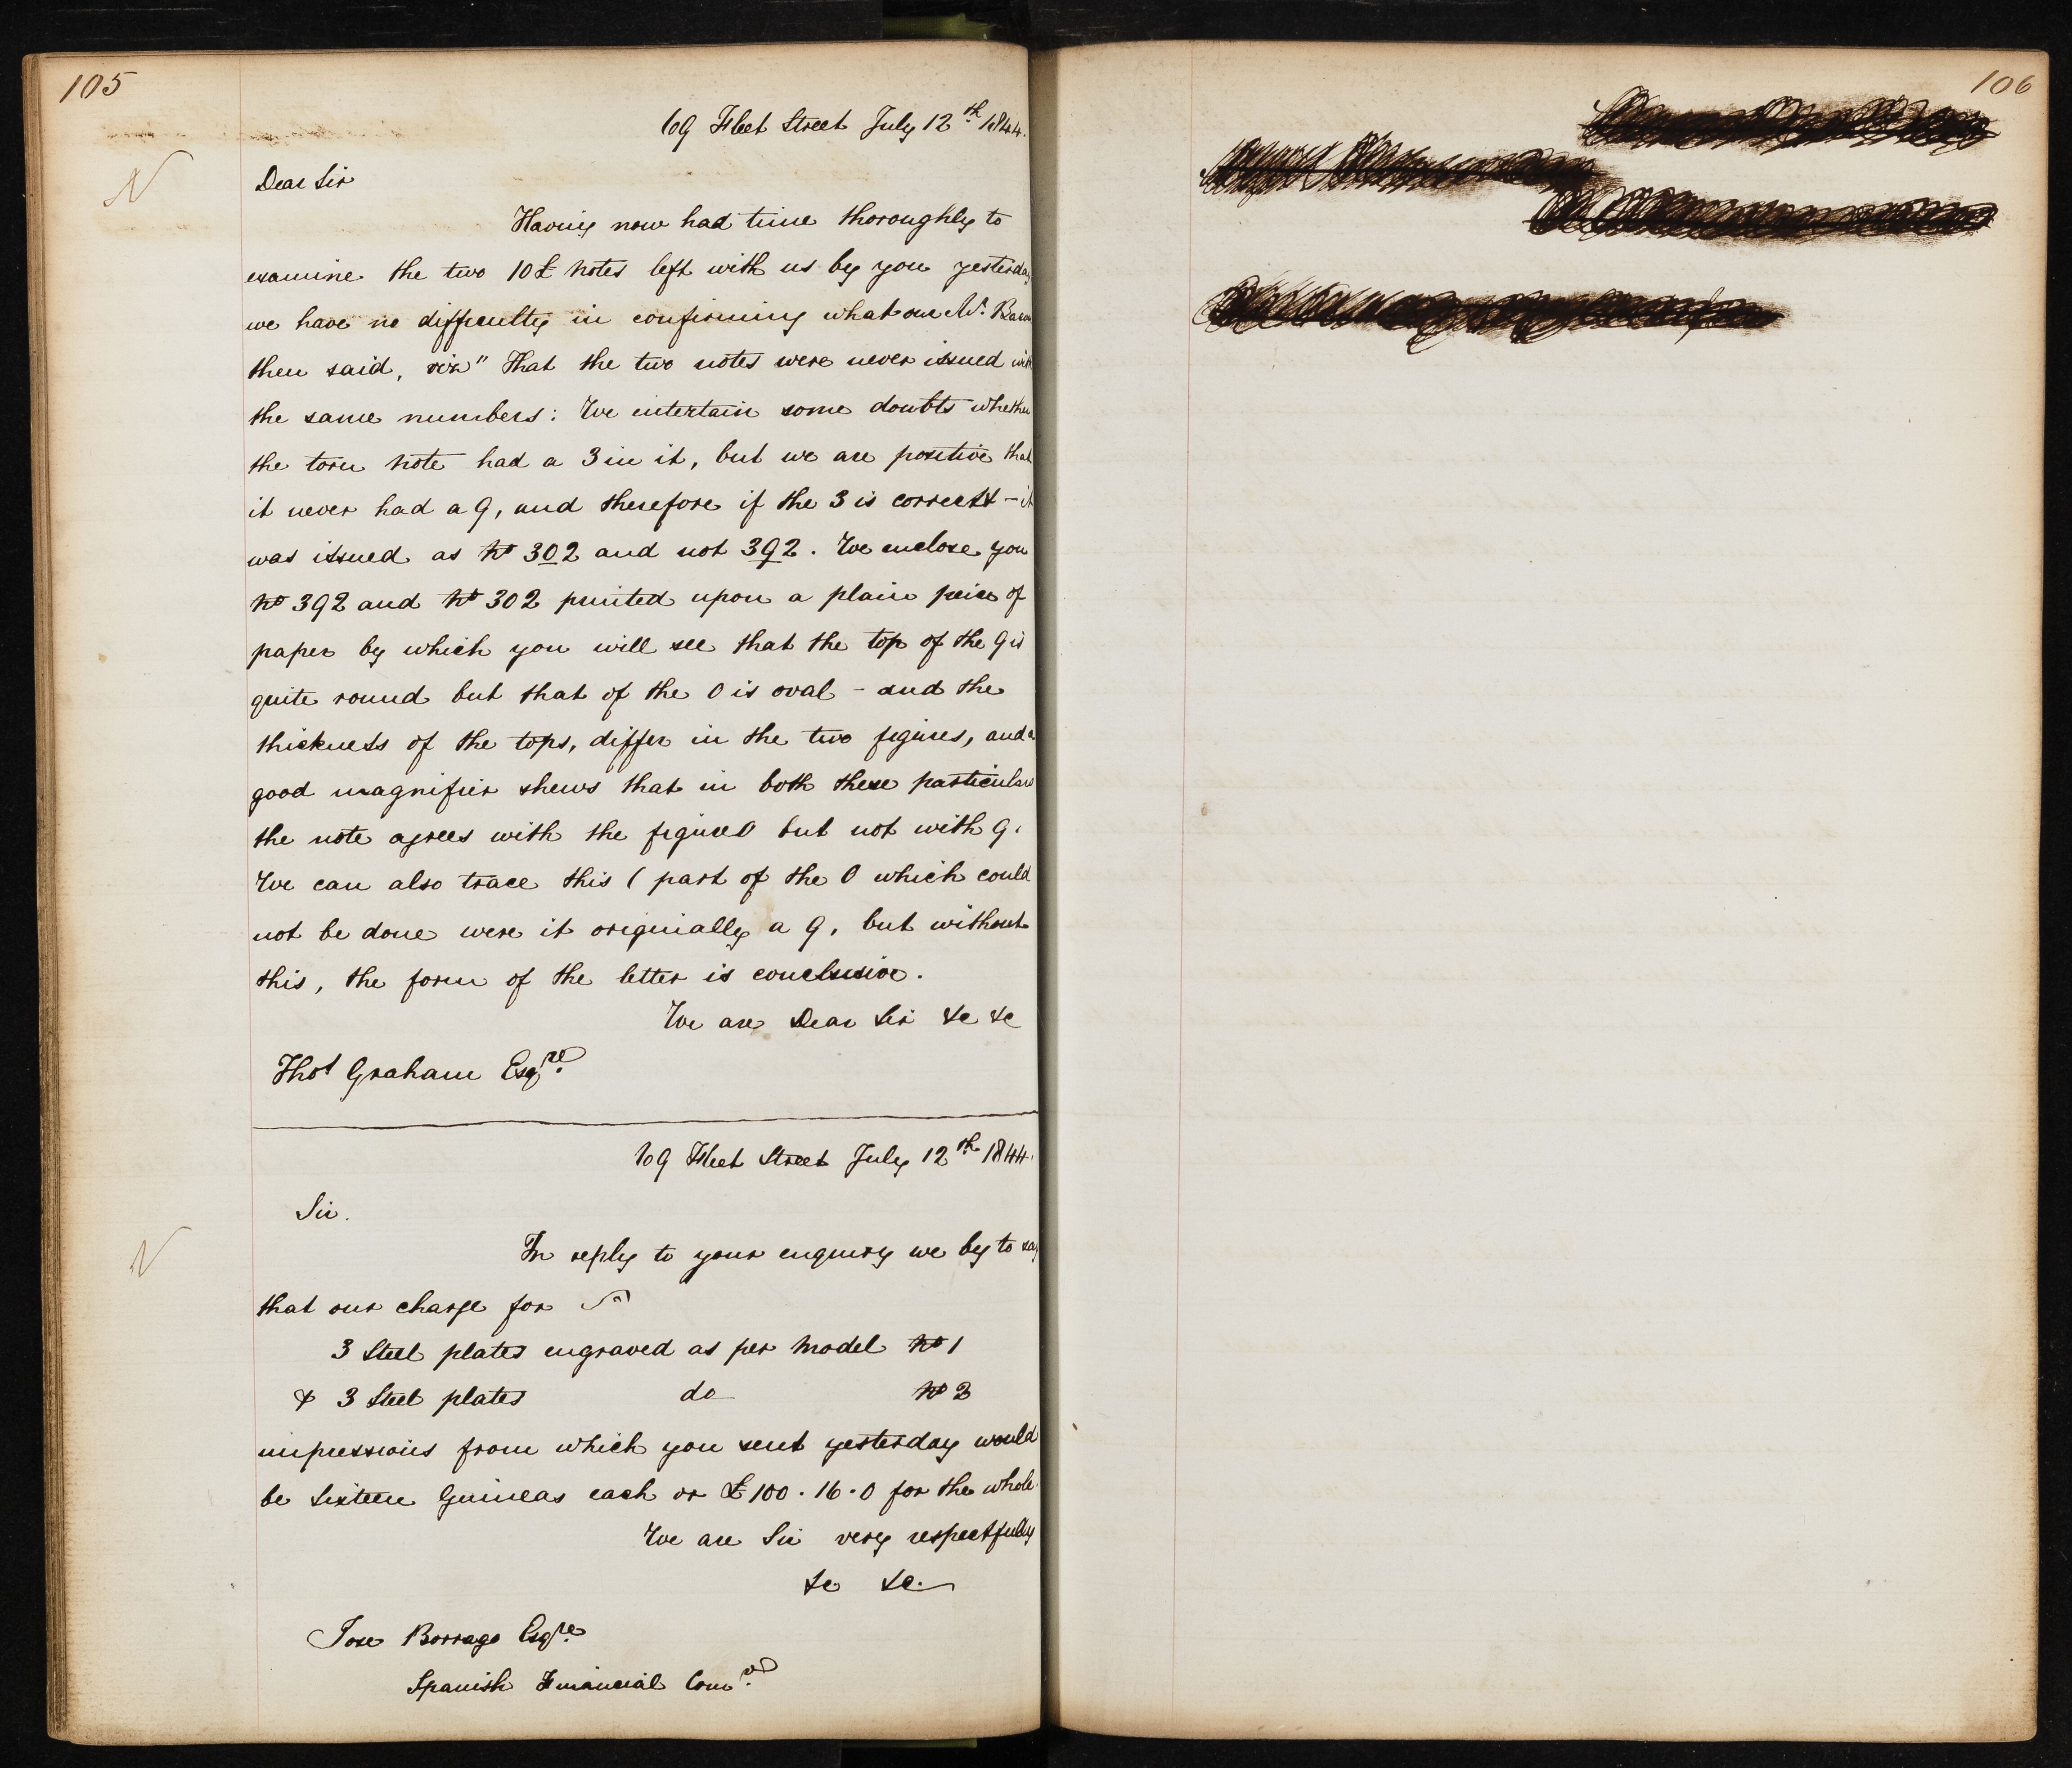 105
69 Fleet Street July 12th 1844.
N
Dear Sir
Having now had time thoroughly to
examine the two 10£ notes left with us by you yesterday
we have no difficulty in confirming what our Mr.
then said, viz" That the two notes were never issued with
the same numbers: We entertain some doubts whether
the torn note had a 3 in it, but we are positive that
it never had a 9, and therefore if the 3 is correct – it
was issued as No 302 and not 392. We enclose you
No 392 and No 302 printed upon a plain peice of
paper by which you will see that the top of the 9 is
quite round but that of the 0 is oval – and the
thickness of the tops, differ in the two figures, and a
good magnifier shews that in both these particulars
the note agrees with the figure 0 but not with 9.
We can also trace this ( part of the 0 which could
not be done were it originally a 9, but without
this, the form of the letter is conclusive.
We are Dear Sir &c &c
Thos Graham Esqre.
69 Fleet Street July 12th 1844.
Sir.
N
In reply to your enquiry we beg to say
that our charge for
3 Steel plates engraved as per Model No 1
& 3 Steel plates do No 2
impressions from which you sent yesterday would
be Sixteen Guineas each or £100.16.0 for the whole.
We are Sir very respectfully
&c &c.
Jose Borrago Esqre.
Spanish Financial Comn.
106